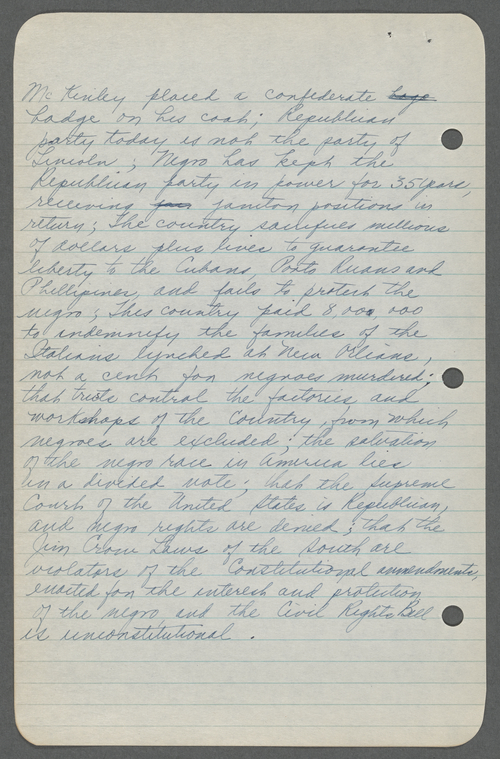 McKinley placed a confederate
badge on his coat; Republican
party today is not the party of
Lincoln; Negro has kept the
Republican party in power for 35 years,
receiving janitor positions in
return; The country sacrifices millions
of dollars plus lives to guarantee
liberty to the Cubans, Porto Ricans and
Phillipines, and fails to protect the
negro; This country paid 8,000,000
to indemnify the families of the
Italians lynched at New Orleans,
not a cent for negroes murdered;
that trusts control the factories and
workshops of the country, from which
negroes are excluded; the salvation
of the negro race in America lies
in a divided vote; that the Supreme
Court of the United States is Republican,
and negro rights are denied; that the
Jim Crow Laws of the South are
violators of the Constitutional amendments,
enacted for the interest and protection
of the negro, and the Civil Rights Bill
is unconstitutional.